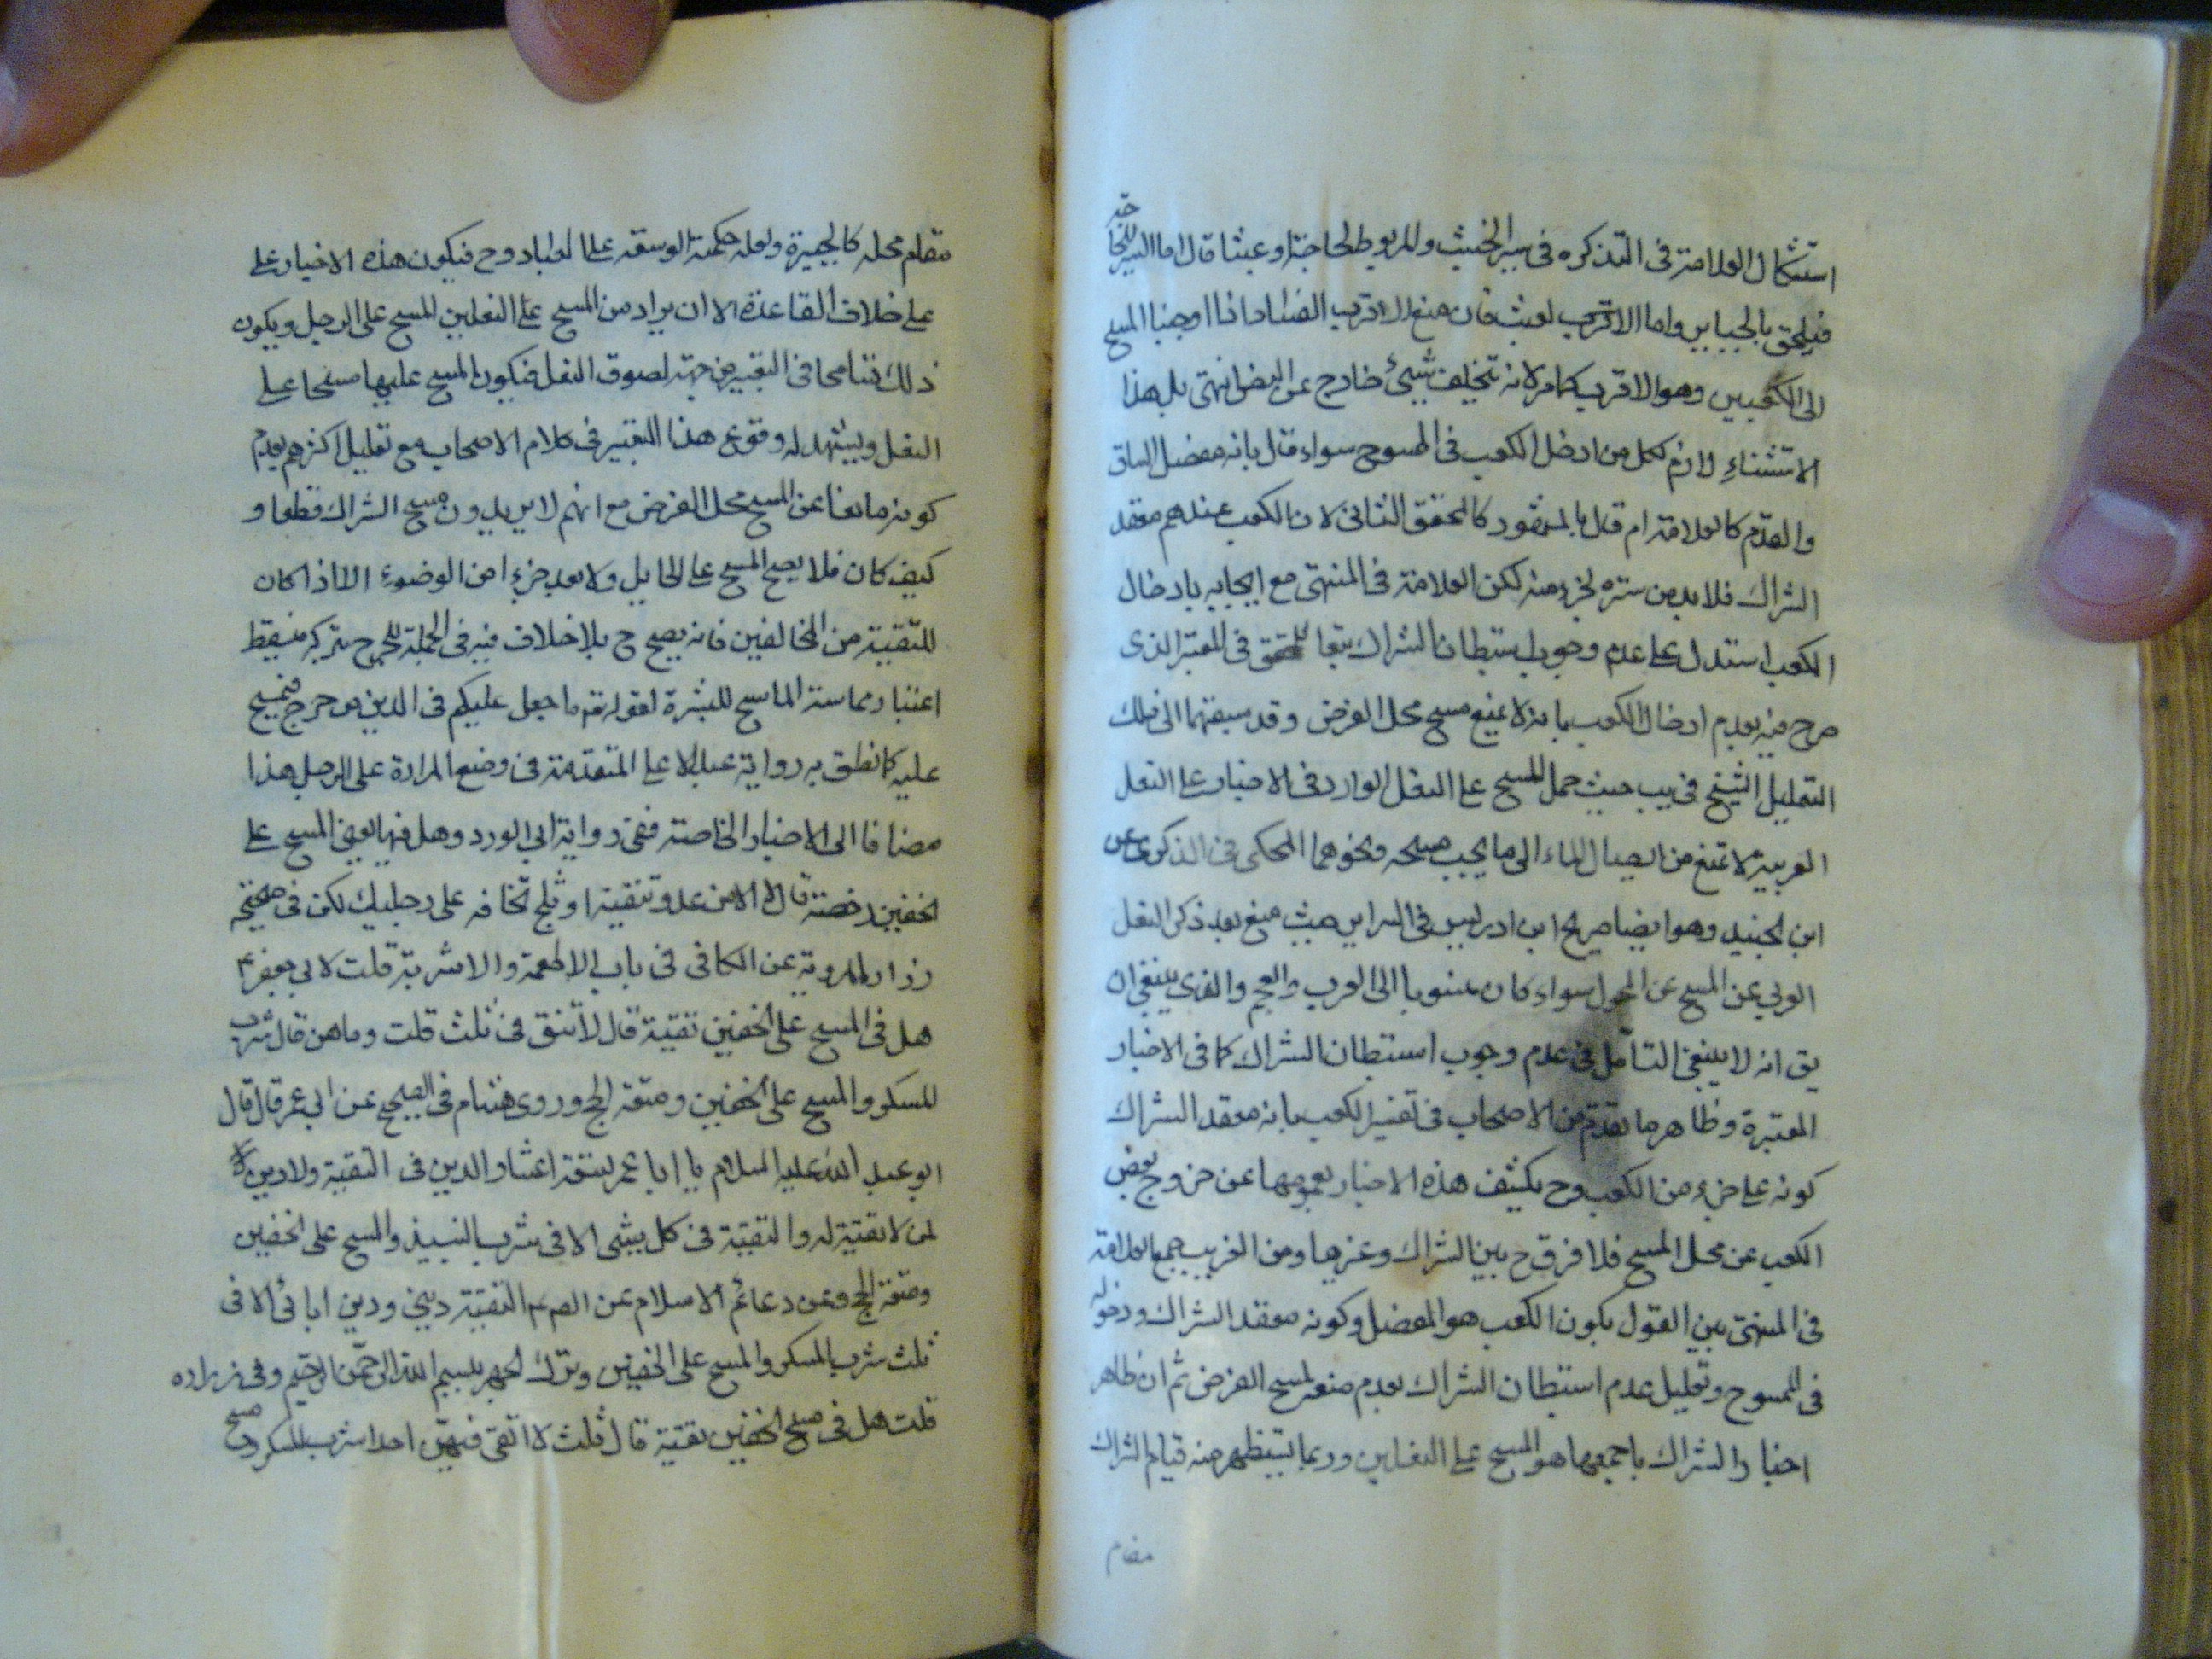 استشكال العلامة فى التذكره فى سير الخشب والمربوط لحاجة او عبثا قال اما السير للحاجة
فيلحق بالجباير واما الاقرب لعبث فان منع الاقرب الفساد اذا اوجبنا المسح
الى الكعبين وهو الاقرب كما مر لانه تخلف شيئ خارج عن النص انتهى بل هذا
الاستثناء لازم لكل من ادخل الكعب فى الممسوح سواء قال بانه مفصل الساق
والقدم كالعلامة ام قال بالمشهور كالمحقق الثانى لان الكعب عندهم معقد
الشراك فلا بد من ستره لجزء منه لكن العلامة فى المنتهى مع ايجابه بادخال
الكعب استدل على عدم وجوب استبطان الشراك تبعا للمحقق فى المعتبر الذى
صرح فيه بعدم ادخال الكعب بانه لا يمنع مسح محل الفرض وقد سبقهما الى ذلك
التعليل الشيخ فى يب حيث حمل المسح على النعل الوارد فى الاخبار على النعل
العربية لا تمنع من ايصال الماء الى ما يجب مسحه ونحوهما المحكى فى الذكرى عن
ابن الجنيد وهو ايضا صريح ابن ادريس فى السراير حيث منع بعد ذكر النعل
العربي عن المسح عن المحول سواء كان منسوبا الى العرب والعجم والذى ينبغى ان
يق انه لا ينبغى التامل فى عدم وجوب استبطان الشراك كما فى الاخبار
المعتبرة وظاهر ما تقدم من الاصحاب فى تفسير الكعب بانه معقد الشراك
كونه على جزء من الكعب وح يكشف هذه الاخبار بعمومها عن خروج بعض
الكعب عن محل المسح فلا فرق ح بين الشراك وغيرها ومن الغريب جمع العلامة
فى المنتهى بين القول بكون الكعب هو المفصل وكونه معقد الشراك ودخوله
فى الممسوح وتعليل عدم استبطان الشراك بعدم منعه لمسح الفرض ثم ان ظاهر
اخبار الشراك باجمعها هو المسح على النعلين وربما يستظهر منه قيام الشراك
مقام
مقام محله كالجبيرة ولعله حكمة الوسعة على العباد وح فيكون هذه الاخبار على
على خلاف القاعدة الا ان يراد من المسح على النعلين المسح على الرجل ويكون
ذلك تسامحا فى التعبير من جهة لصوق النعل فيكون المسح عليها مسحا على
النعل ويشهد له وقوع هذا التعبير فى كلام الاصحاب مع تعليل اكثرهم بعدم
كونه مانعا عن المسح محل الفرض مع انهم لا يريدون مسح الشراك قطعا و
كيف كان فلا يصح المسح على الحايل ولا يعد جزءا من الوضوء الا اذا كان
للتقية من المخالفين فانه يصح ح بلا خلاف فيه فى الجملة للحرج بتركه فيسقط
اعتبار مماسة الماسح للبشرة لقوله تع ما جعل عليكم فى الدين من حرج فيمسح
عليه كما نطق به رواية عبد الاعلى المتقدمة فى وضع المرارة على الرجل هذا
مضافا الى الاخبار الخاصة ففى رواية ابي الورد وهل فيها يعنى المسح على
الخفين رخصة قال لا الا من عدو تتقيه او ثلج تخافه على رجليك لكن فى صحيحة
زرارة المروية عن الكافى فى باب الاطعمة والاشربة قلت لابي جعفر ع
هل فى المسح على الخفين تقية قال لا نتق فى ثلث قلت وما هن قال شرب
المسكر والمسح على الخفين ومتعة الحج وروى هشام فى الصحيح عن ابي عمر قال قال
ابو عبد الله عليه السلام يا ابا عمر تسعة اعشار الدين فى التقية ولا دين
لمن لا تقية له والتقية فى كل شى الا فى شرب النبيذ والمسح على الخفين
ومتعة الحج وعن دعائم الاسلام عن الص ع التقية دينى ودين ابائى الا فى
ثلث شرب المسكر والمسح على الخفين وترك الجهر ببسم الله الرحمن الرحيم وفى زراره
قلت هل فى مسح الخفين تقية قال ثلث لا اتقى فيهن احدا شرب المسكر ومسح